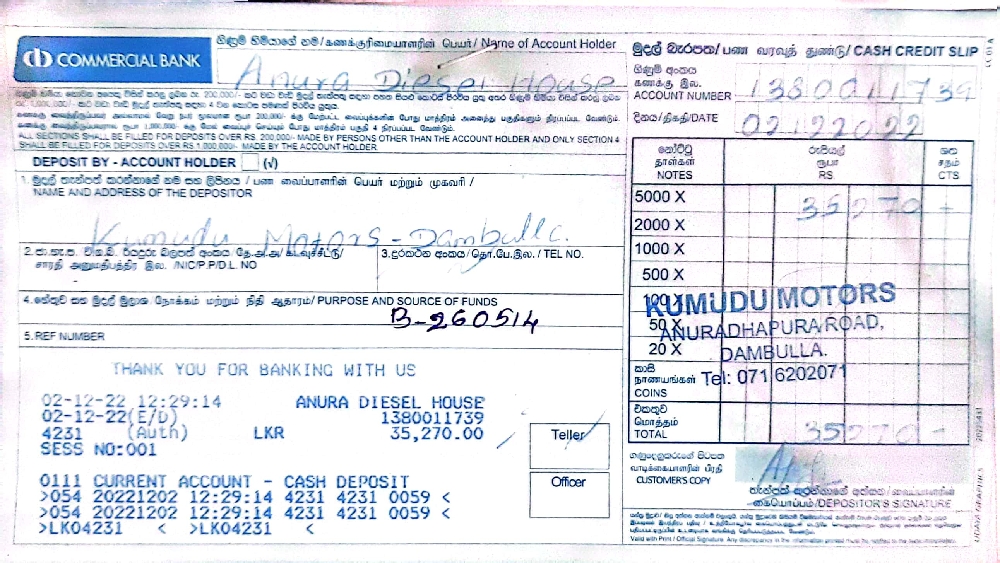 COMMERCIAL BANK
ගිණුම් හිමියාගේ නම/கணக்குரிமையாளரின் பெயர்/ Name of Account Holder
Anura Diesel House
මුදල් බැරපත/பண வரவுத் துண்டு/ CASH CREDIT SLIP
ගිණුම් අංකය
கணக்கு இல.
ACCOUNT NUMBER
1380011739
දිනය/திகதி/DATE
02122022
ALL SECTIONS SHALL BE FILLED FOR DEPOSITS OVER RS. 200,000/- MADE BY PERSONS OTHER THAN THE ACCOUNT HOLDER AND ONLY SECTION 4
SHALL BE FILLED FOR DEPOSITS OVER RS.1,000,000/- MADE BY THE ACCOUNT HOLDER.
DEPOSIT BY - ACCOUNT HOLDER (√)
1. මුදල් තැන්පත් කරන්නාගේ නම සහ ලිපිනය / பண வைப்பாளரின் பெயர் மற்றும் முகவரி /
NAME AND ADDRESS OF THE DEPOSITOR
Kumudu Motors - Dambulla.
/NIC/P.P/D.L. NO
3.දුරකථන අංකය/தொ.பே.இல. / TEL NO.
4.හේතුව සහ මුදල් මූලාශ්‍ර/ நோக்கம் மற்றும் நிதி ஆதாரம்/ PURPOSE AND SOURCE OF FUNDS
B-260514
5. REF NUMBER
THANK YOU FOR BANKING WITH US
02-12-22 12:29:14 ANURA DIESEL HOUSE
02-12-22(E/D) 1380011739
4231 (Auth) LKR 35,270.00
SESS NO:001
0111 CURRENT ACCOUNT - CASH DEPOSIT
>054 20221202 12:29:14 4231 4231 0059 <
>054 20221202 12:29:14 4231 4231 0059 <
>LK04231 < >LK04231 <
Teller
Officer
නෝට්ටු රුපියල් ශත
தாள்கள் ரூபா சதம்
NOTES RS CTS
5000 X 35270 -
2000 X
1000 X
500 X
100 X
50 X
20 X
KUMUDU MOTORS
ANURADHAPURA ROAD,
DAMBULLA.
Tel: 071 6202071
කාසි
நாணயங்கள்
COINS
එකතුව
மொத்தம்
TOTAL 35270 -
ගනුදෙනුකරුගේ පිටපත
வாடிக்கையாளரின் பிரதி
CUSTOMER'S COPY
තැන්පත් කරන්නාගේ අත්සන/வைப்பாளரின்
கையொப்பம்/DEPOSITOR'S SIGNATURE